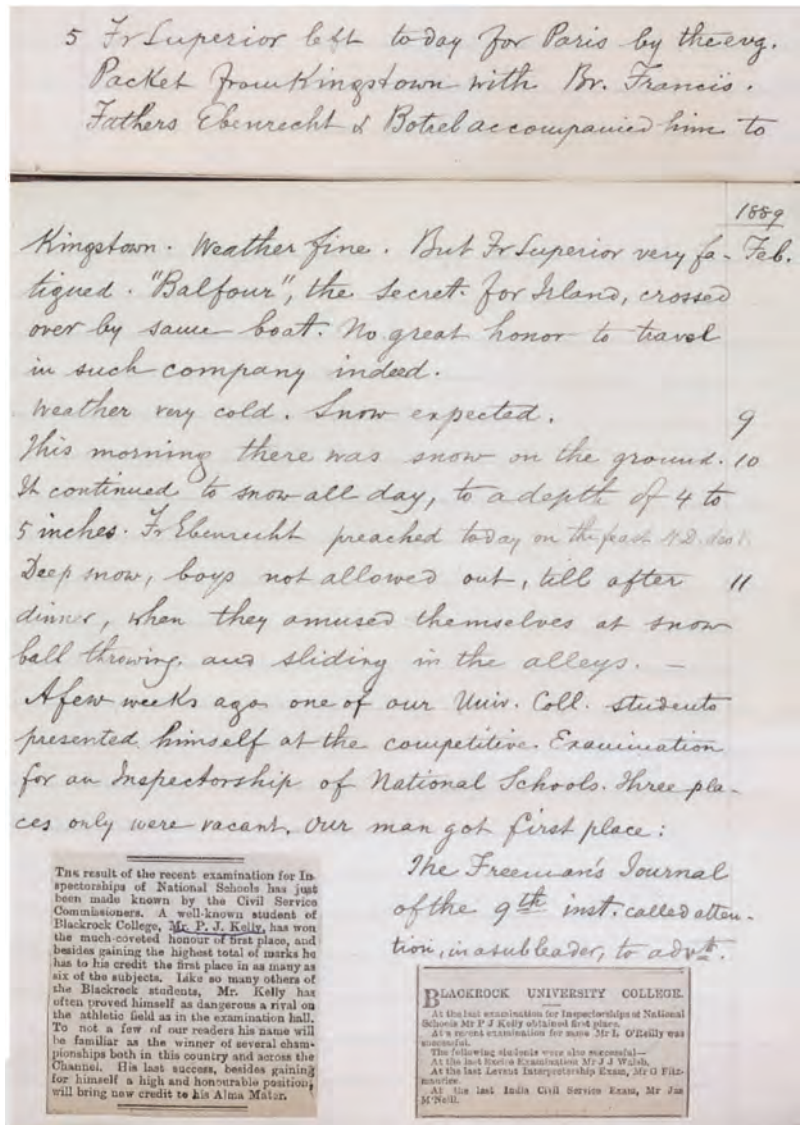 5 Fr Superior left today for Paris by the evg.
Packet from Kingstown with Br. Francis.
Fathers Ebenrecht & Botrel accompanied him to
1889
Kingstown. Weather fine. But Fr Superior very fa- Feb.
tigued. "Balfour", the Secret. for Irland, crossed
over by same boat. No great honor to travel
in such company indeed.
Weather very cold. Snow expected. 9
This morning there was snow on the ground. 10
It continued to snow all day, to a depth of 4 to
5 inches. Fr Ebenrecht preached today on the feast
Deep snow, boys not allowed out, till after 11
dinner, when they amused themselves at snow
ball throwing and sliding in the alleys. —
A few weeks ago one of our Univ. Coll. students
presented himself at the competitive Examination
for an Inspectorship of National Schools. Three pla-
ces only were vacant. Our man got first place:
THE result of the recent examination for In-
spectorships of National Schools has just
been made known by the Civil Service
Commissioners. A well-known student of
Blackrock College, Mr. P. J. Kelly, has won
the much-coveted honour of first place, and
besides gaining the highest total of marks he
has to his credit the first place in as many as
six of the subjects. Like so many others of
the Blackrock students, Mr. Kelly has
often proved himself as dangerous a rival on
the athletic field as in the examination hall.
To not a few of our readers his name will
be familiar as the winner of several cham-
pionships both in this country and across the
Channel. His last success, besides gaining
for himself a high and honourable position,
will bring new credit to his Alma Mater.
The Freeman's Journal
of the 9th inst. called atten-
tion, in a sub leader, to advt.
BLACKROCK UNIVERSITY COLLEGE.
At the last examination for Inspectorships of National
Schools Mr P J Kelly obtained first place.
At a recent examination for same Mr L O'Reilly was
successful.
The following students were also successful—
At the last Excise Examination Mr J J Walsh.
At the last Levant Interpretership Exam, Mr G Fitz-
maurice.
At the last India Civil Service Exam, Mr Jas
M'Neill.